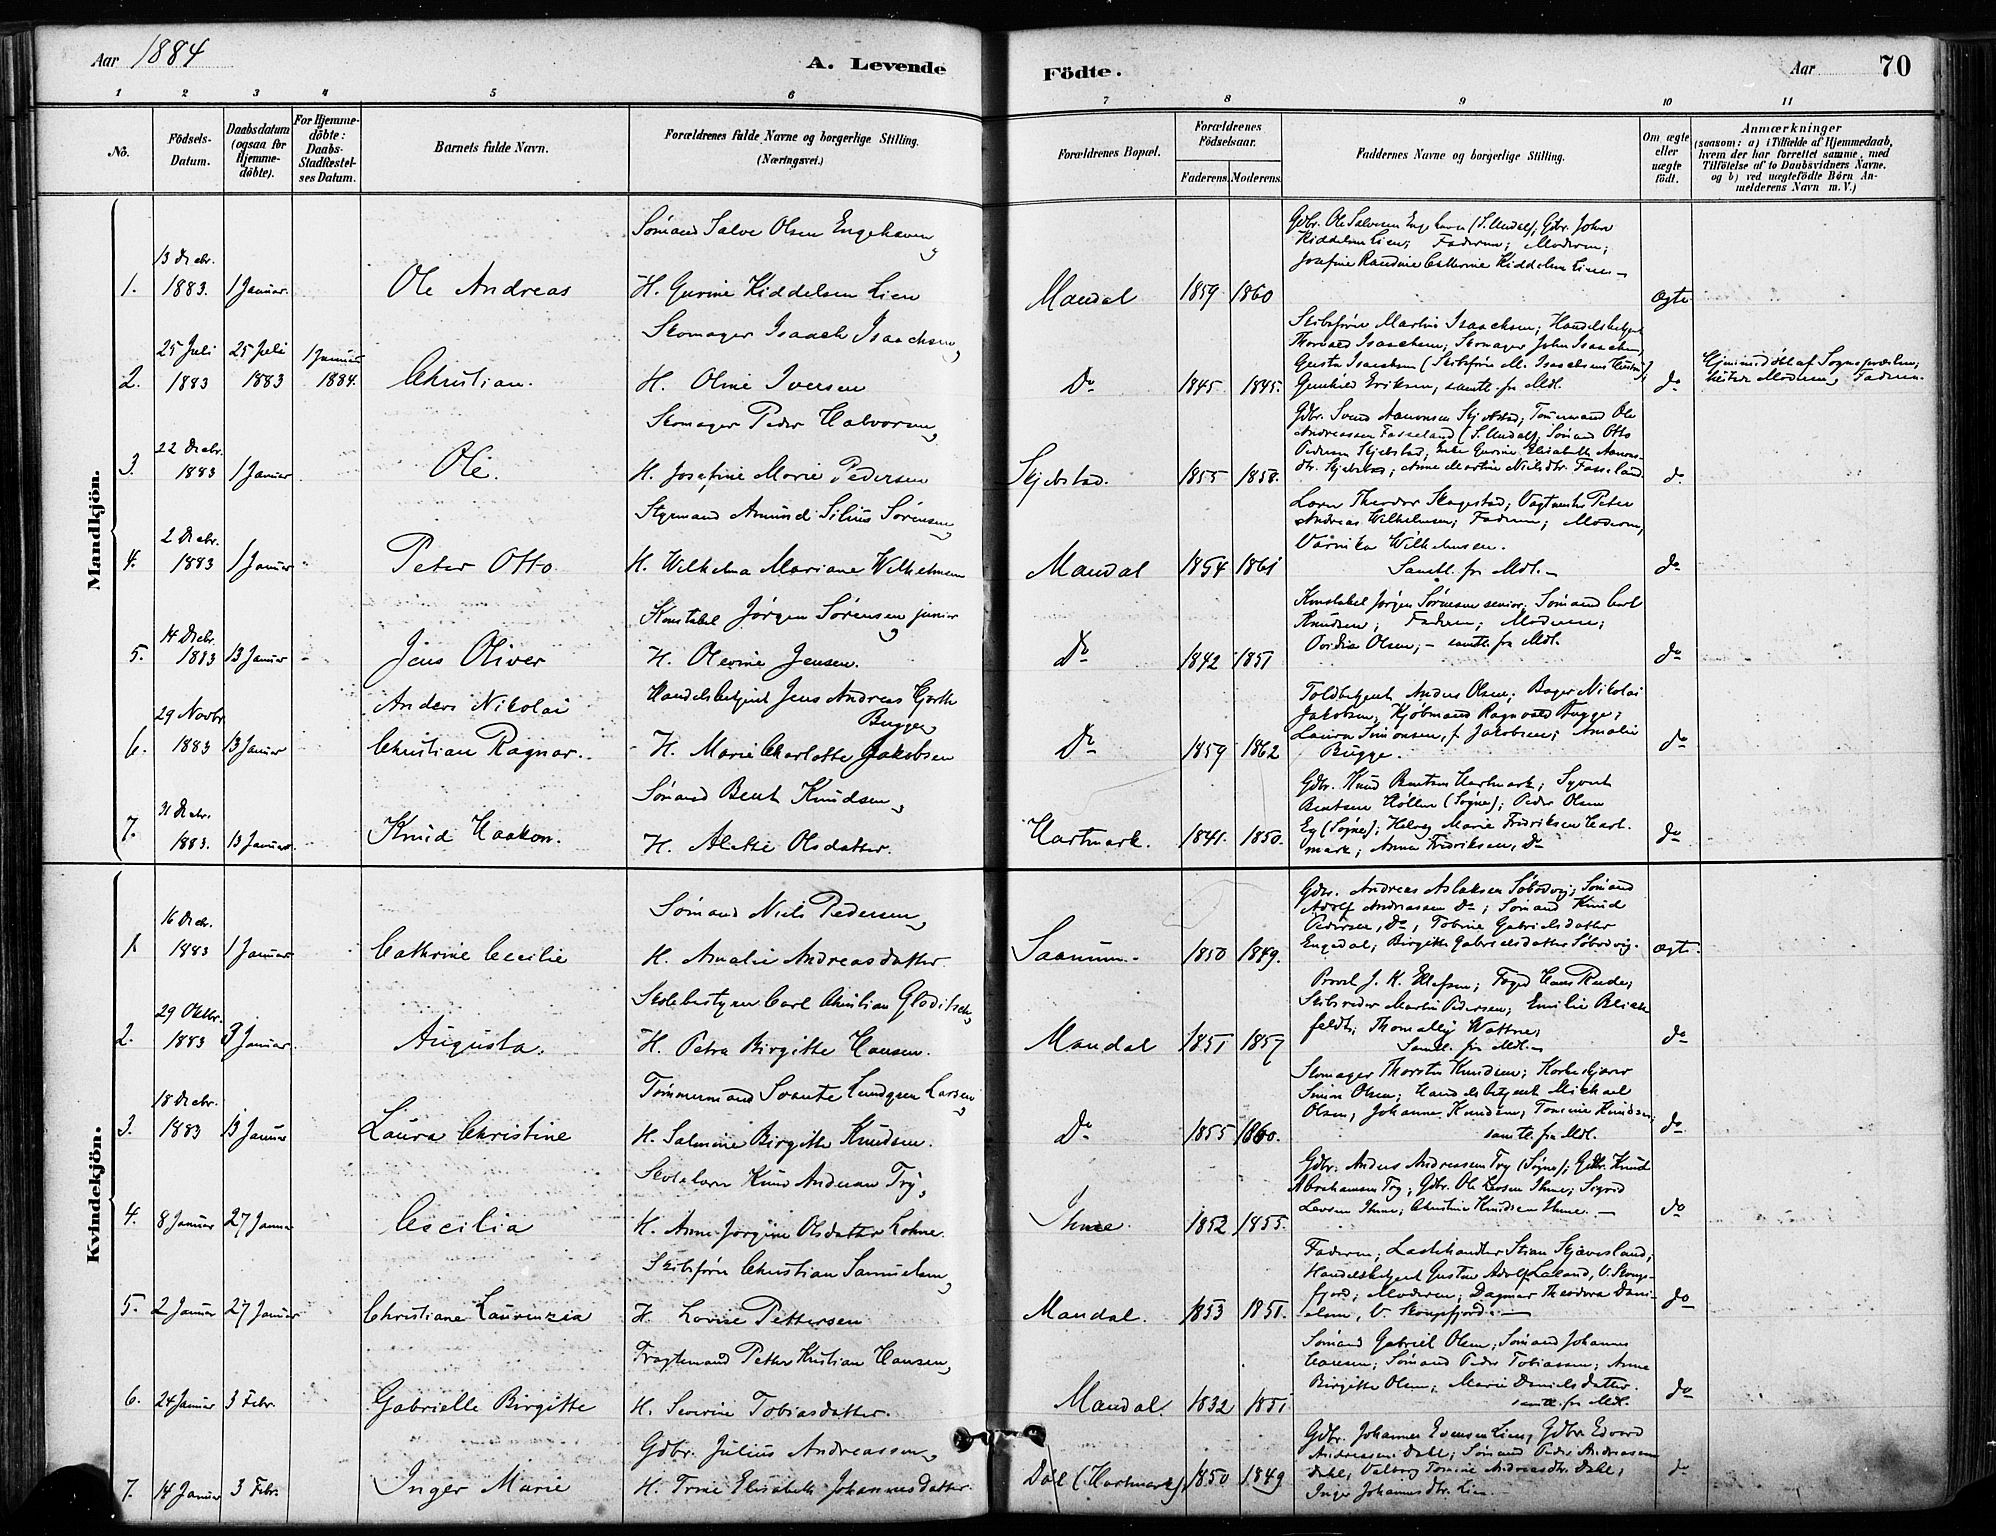 Aar 1884
A. Levende
Födte.
Aar
70
1 2 3 4 5 6 7 8 9 10 11
No.
Födsels-
Datum.
Daabsdatum
(ogsaa for
Hjemme-
döbte).
For Hjemme-
döbte:
Daabs-
Stadfæstel-
ses Datum.
Barnets fulde Navn.
Forældrenes fulde Navne og borgerlige Stilling.
(Næringsvei.)
Forældrenes Bopæl.
Forældrenes
Födselsaar.
Faderens. Moderens.
Faddernes Navne og borgerlige Stilling.
Om ægte
eller
uægte
födt.
Anmærkninger
(saasom: a) i Tilfælde af Hjemmedaab,
hvem der har forrettet samme, med
Tilföielse af to Daabsvidners Navne.
og b) ved uægtefödte Börn An-
melderens Navn m. V.)
Mandkjön.
1.
13 Decbr.
1883.
1 Januar.
Ole Andreas
Sømand Salve Olsen Engehaven,
H. Gurine Kiddelsen Lien
Mandal
1859
1860
Gdbr. Ole Salvesen Engehaven (S. Undal); Gdbr. John
Kiddelsen Lien; Faderen; Moderen;
Josefine Kiddelsen Lien
Ægte
2.
25 Juli
1883
25 Juli
1883
1 Januar
1884.
Christian.
Skomager Isaach Isaachsen,
H. Oline Iversen
Do
1845
1845.
Skibsfører Martin Isaachsen; Handelsbetjent
Isaachsen; Skomager John Isaachsen,
Isaachsen (Skibsfører M. Isaachsens Hustru);
Gunhild Eriksen, samtl. fra Mdl.
do
Hjemmedøbt af Sognepræsten;
Moderen, Faderen.
3.
22 Decbr.
1883
1 Januar
Ole.
Skomager Peder Halvorsen,
H. Josefine Marie Pedersen
Skjebstad.
1855
1858.
Gdbr. Svend Aanonsen Skjebstad; Tømmermand Ole
Andreassen Fasseland (S. Undal); Sømand Otto
Pedersen Skjebstad, Enke Gurine Elisabeth Aanons-
dtr. Skjebstad; Anne Martine Nielsdtr. Fasseland.
do
4.
2 Decbr.
1883
1 Januar
Peter Otto
Styrmand Amund Silius Sørensen,
H. Wilhelma Mariane Wilhelmsen
Mandal
1854
1861
Theodor Skagestad; Vagtmester Peter
Andreas Wilhelmsen; Faderen; Moderen,
Wilhelmsen.
Samtl. fra Mdl.
do
5.
14 Decbr.
1883
13 Januar
Jens Oliver
Konstabel Jørgen Sørensen junior,
H. Olevine Jensen.
Do
1842
1851
Konstabel Jørgen Sørensen senior; Sømand Carl
Knudsen; Faderen; Moderen;
Ovidia Olsen; samtl. fra Mdl.
do
6.
29 Novbr.
1883
13 Januar
Anders Nikolai
Christian Ragnar.
Handelsbetjent Jens Andreas Gjerth
Bugge,
H. Marie Charlotte Jakobsen
Do
1859
1862
Toldbetjent Anders Olsen; Bager Nikolai
Jakobsen; Kjøbmand Ragnvald Bugge;
Laura Simonsen, f. Jakobsen; Amalie
Bugge.
do
7.
31 Decbr.
1883.
13 Januar
Knud Haakon.
Sømand Bent Knudsen,
H. Alette Olsdatter.
Hartmark.
1841.
1850.
Gdbr. Knud Bentsen Hartmark; Syvert
Bentsen Høllen (Søgne); Peder Olsen
Eg (Søgne); Marie Fredriksen Hart-
mark; Anna Fredriksen, Do
do
Kvindekjön.
1.
16 Decbr.
1883
1 Januar
Cathrine Cecilie
Sømand Niels Pedersen,
H. Amalie Andreasdatter.
Saanum.
1850
1849.
Gdbr. Andreas Aslaksen; Sømand
Adolf Andreassen Do; Sømand Knud
Pedersen, Do, Tobine Gabrielsdatter
Engedal; Birgitte Gabrielsdatter
ægt.
2.
29 Oktbr.
1883
3 Januar
Augusta.
Skolebestyrer Carl Christian Gløditsch,
H. Petra Birgitte Hansen.
Mandal
1851
1857
Provst J. K. Ellefsen; Foged Hans;
Skibsreder Martin Pedersen; Emilie Blich
feldt; Thomally Wattne;
Samtl. fra Mdl.
do
3.
18 Decbr.
1883
13 Januar
Laura Christine
Tømmermand Svante Lundgren Larsen,
H. Salmine Birgitte Knudsen.
Do
1855
1860.
Skomager Thorsten Knudsen;
Simon Olsen; Handelsbetjent Michael
Olsen, Johanne Knudsen; Tomine Knudsen;
samtl. fra Mdl.
do
4.
8 Januar
27 Januar
Cecilia
Skolelærer Knud Andersen Try,
H. Anne Jørgine Olsdatter Lohne.
Ihme.
1852
1855.
Gdbr. Anders Andreassen Try (Søgne); Gdbr. Knud
Abrahamsen Try; Gdbr. Ole Larsen Ihme; Sigrid
Larsen Ihme; Christine Knudsen Ihme.
do
5.
2 Januar
27 Januar
Christiane Laurenzia
Skibsfører Christian Samuelsen,
H. Lovise Pettersen
Mandal.
1853
1851.
Faderen; Stian Skjævesland;
Handelsbetjent Gustav Adolf, V. Skoge-
fjord; Moderen; Dagmar Theodora Dani-
elsen, V. Skogsfjord.
do
6.
24 Januar
3 Febr.
Gabrielle Birgitte
Fragtemand Petter Kristian Hansen,
H. Severine Tobiasdatter.
Mandal.
1832
1851
Sømand Gabriel Olsen; Sømand Johannes
Hansen; Sømand Peder Tobiassen; Anne
Birgitte Olsen; Marie Danielsdatter.
samtl. fra Mdl.
do
7.
14 Januar
3 Febr.
Inger Marie
Gdbr. Julius Andreassen,
H. Trine Elisabeth Johannesdatter.
Dal (Hartmark)
1850
1849
Gdbr. Johannes Evensen Lien, Gdbr. Edvard
Andreassen Dahl; Sømand Peder Andreassen
Dahl; Valborg Tomine Andreasdtr. Dahl;
Inger Johannesdtr. Lien.
do